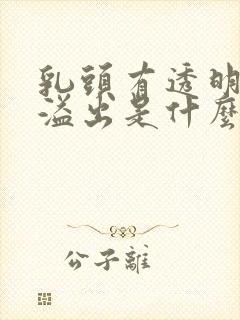 乳頭有透明
溢出是什麼
公子離